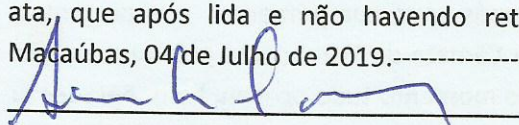 ata, que após lida e não havendo ret
Macaúbas, 04 de Julho de 2019.---------------